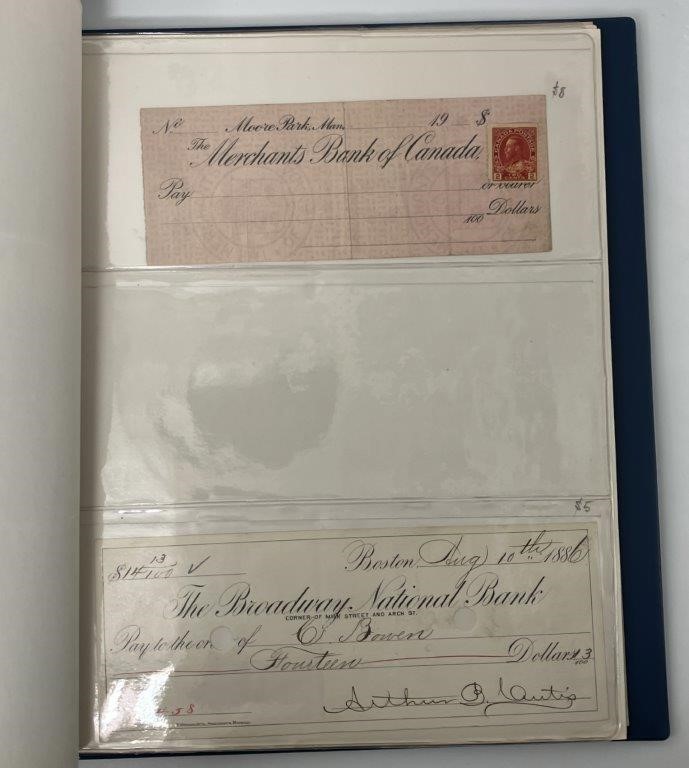 $8
No Moore Park, Man. 19 $
The Merchants Bank of Canada
CANADA POSTAGE
2 2
Pay or bearer
100 Dollars
$5
$14 13/100 Boston, Aug 10th 1886
The Broadway National Bank
CORNER OF MILK STREET AND ARCH ST.
Pay to the or of C. Bowen
Fourteen Dollars 13/100
58
Arthur B.